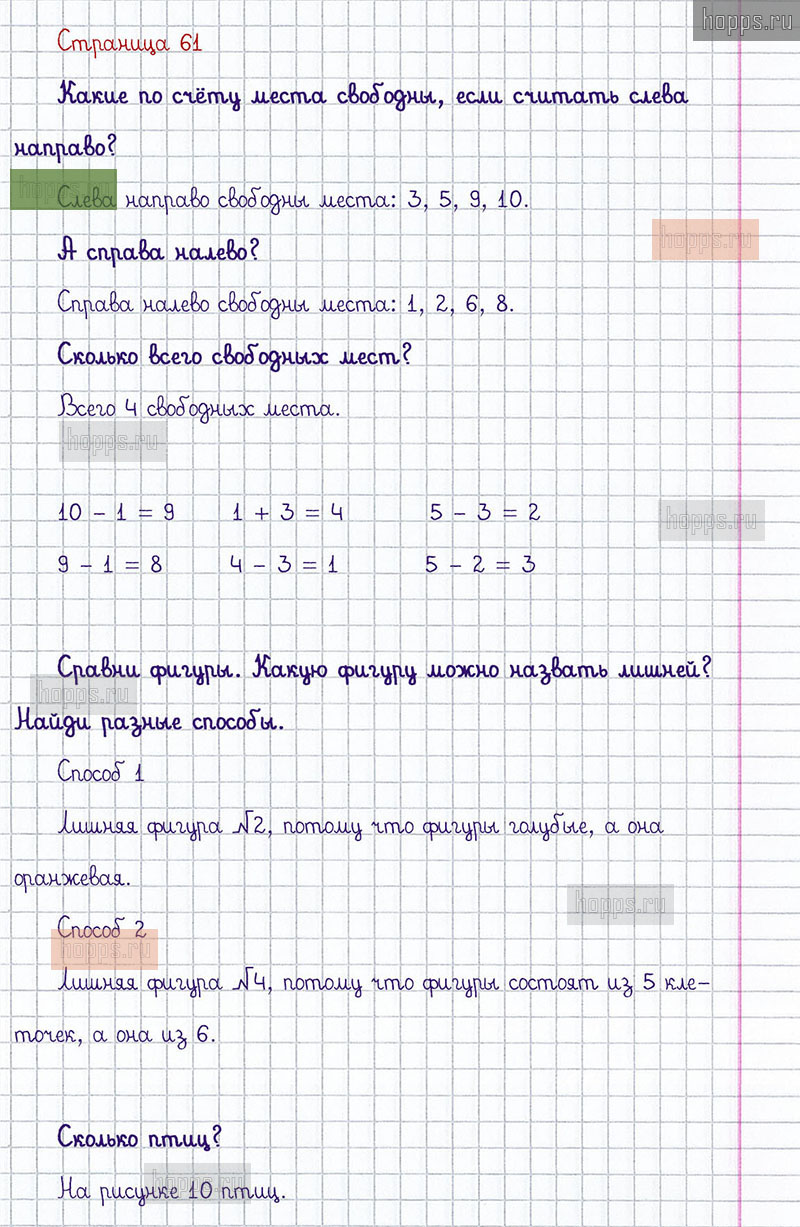 hopps.ru
Страница 61
Какие по счёту места свободны, если считать слева
направо?
hopps.ru
Слева направо свободны места: 3, 5, 9, 10.
hopps.ru
А справа налево?
Справа налево свободны места: 1, 2, 6, 8.
Сколько всего свободных мест?
Всего 4 свободных места.
hopps.ru
10 - 1 = 9 1 + 3 = 4 5 - 3 = 2
hopps.ru
9 - 1 = 8 4 - 3 = 1 5 - 2 = 3
Сравни фигуры. Какую фигуру можно назвать лишней?
hopps.ru
Найди разные способы.
Способ 1
Лишняя фигура №2, потому что фигуры голубые, а она
оранжевая.
hopps.ru
Способ 2
hopps.ru
Лишняя фигура №4, потому что фигуры состоят из 5 кле-
точек, а она из 6.
Сколько птиц?
hopps.ru
На рисунке 10 птиц.